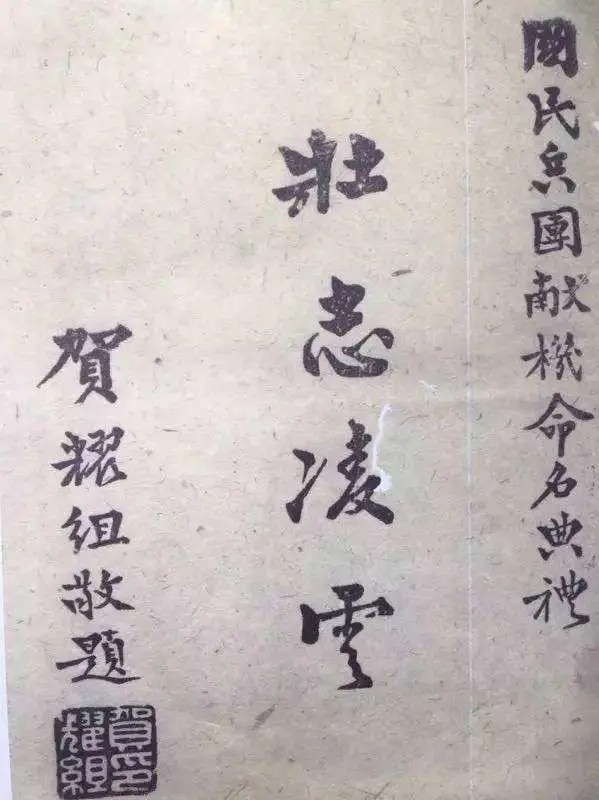 國民兵團献機命名典禮
壯志凌雲
賀耀組敬題
賀耀組印